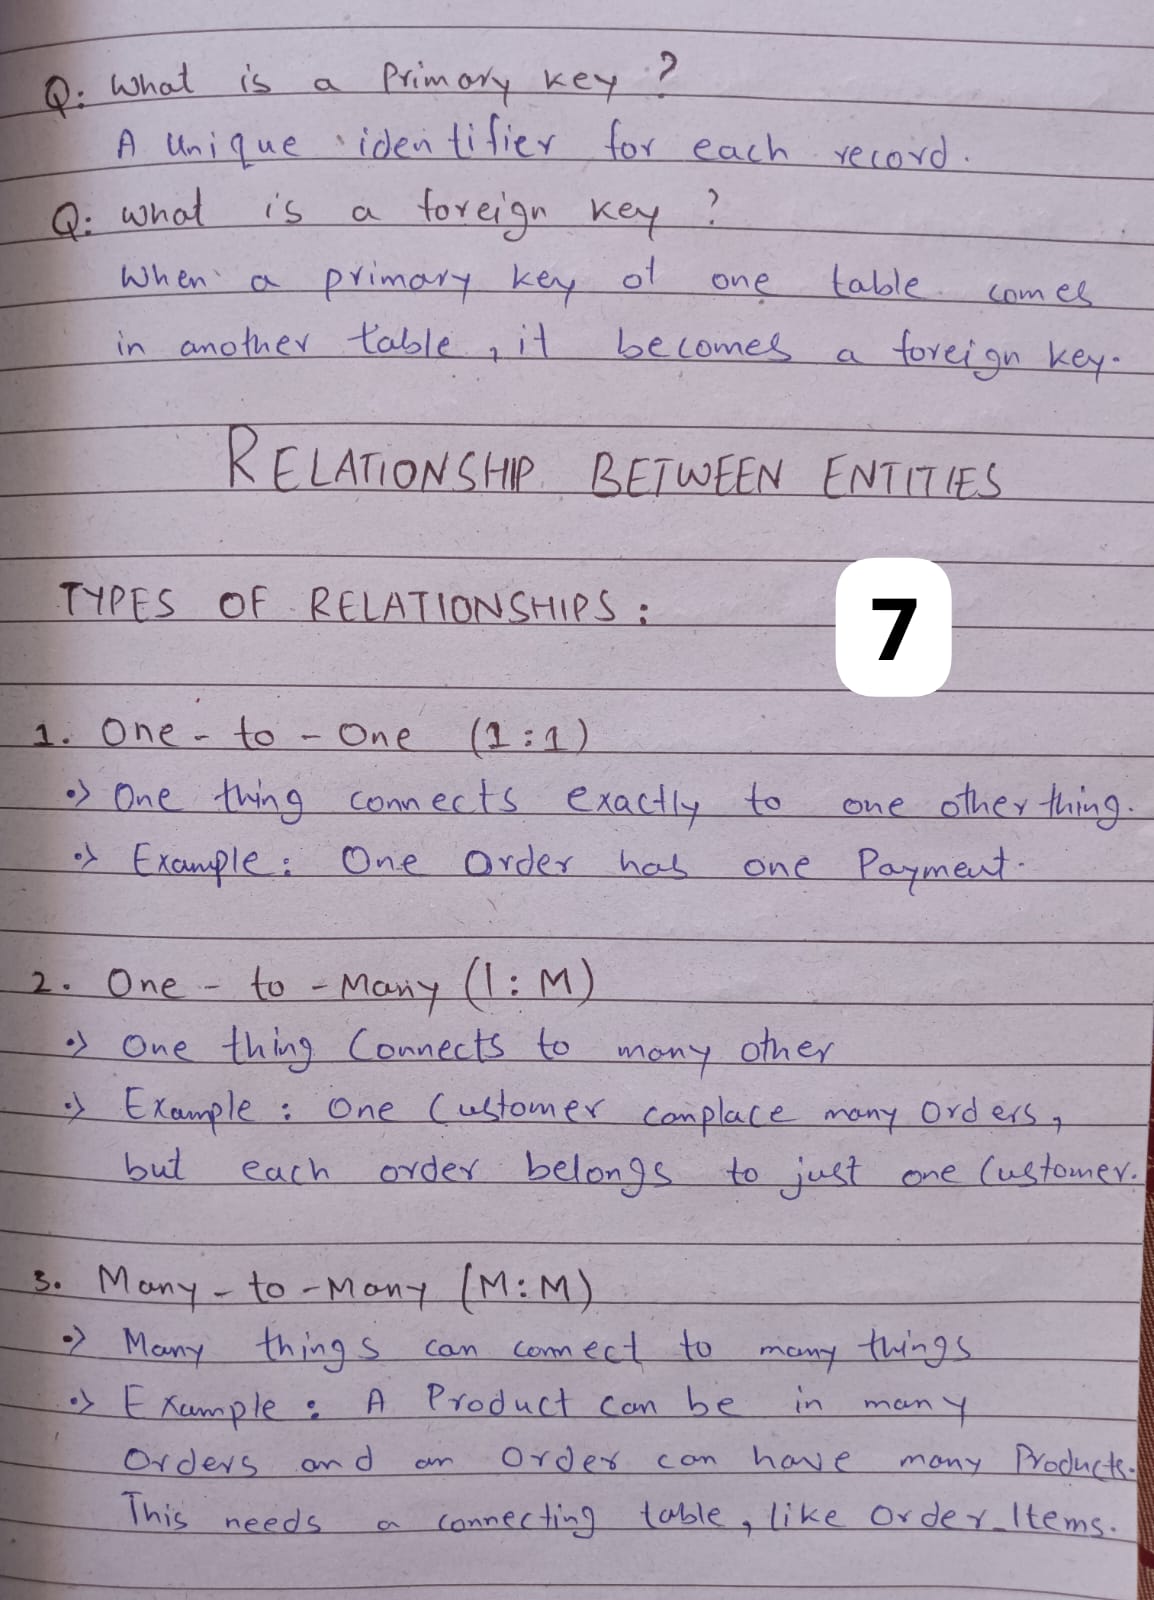 Q: What is a Primary key ?
A Unique identifier for each record.
Q: what is a foreign key ?
When a primary key of one table comes
in another table, it becomes a foreign key.
RELATIONSHIP BETWEEN ENTITIES
TYPES OF RELATIONSHIPS :
7
1. One - to - One (1:1)
•> One thing connects exactly to one other thing.
•> Example: One Order has one Payment.
2. One - to - Many (1:M)
•> One thing Connects to many other
•> Example: One Customer can place many Orders,
but each order belongs to just one Customer.
3. Many - to - Many (M:M)
•> Many things can connect to many things
•> Example: A Product can be in many
Orders and an Order can have many Products.
This needs a connecting table, like Order_Items.